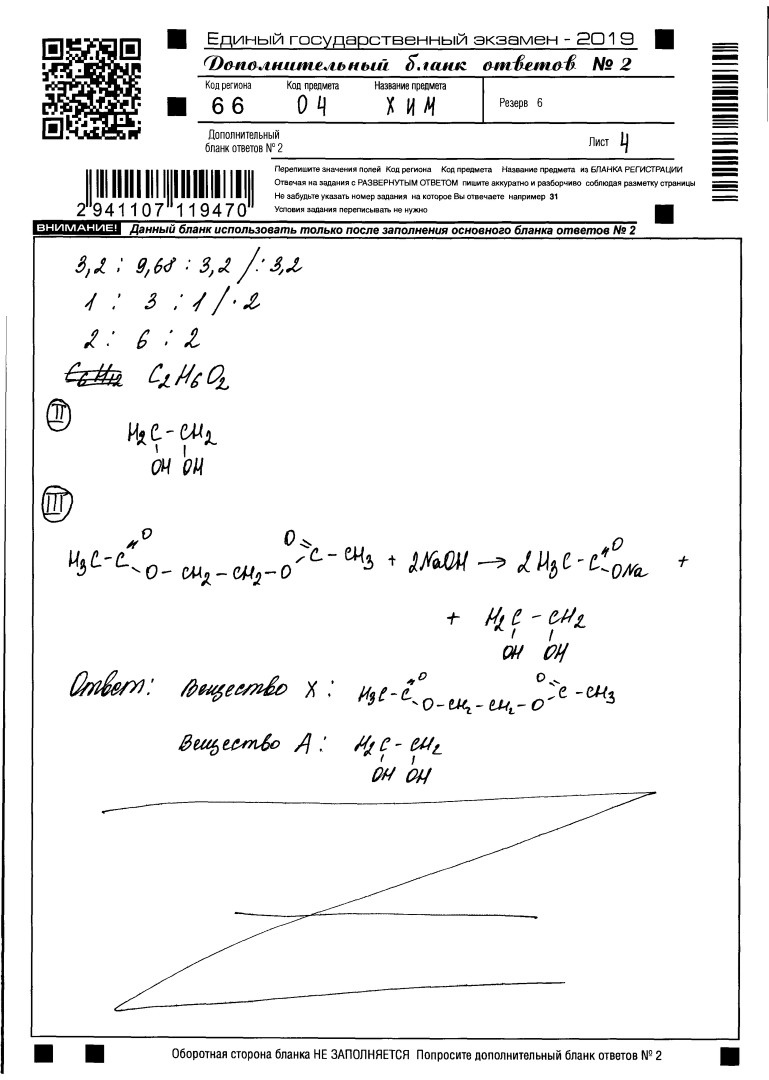 Единый государственный экзамен - 2019
Дополнительный бланк ответов № 2
Код региона Код предмета Название предмета
66 04 ХИМ
Резерв 6
Дополнительный
бланк ответов № 2
Лист 4
Перепишите значения полей Код региона Код предмета Название предмета из БЛАНКА РЕГИСТРАЦИИ
Отвечая на задания с РАЗВЕРНУТЫМ ОТВЕТОМ пишите аккуратно и разборчиво соблюдая разметку страницы
Не забудьте указать номер задания на которое Вы отвечаете например 31
Условия задания переписывать не нужно
2 941107 119470
ВНИМАНИЕ! Данный бланк использовать только после заполнения основного бланка ответов № 2
3,2 : 9,68 : 3,2 /: 3,2
1 : 3 : 1 / · 2
2 : 6 : 2
C6H12 C2H6O2
II
H2C - CH2
OH OH
III
O O
H3C - C C - CH3 + 2NaOH → 2 H3C - C O +
O - CH2 - CH2 - O ONa
+ H2C - CH2
OH OH
Ответ: Вещество X: H3C - C O O C - CH3
O - CH2 - CH2 - O
Вещество A: H2C - CH2
OH OH
Оборотная сторона бланка НЕ ЗАПОЛНЯЕТСЯ Попросите дополнительный бланк ответов № 2